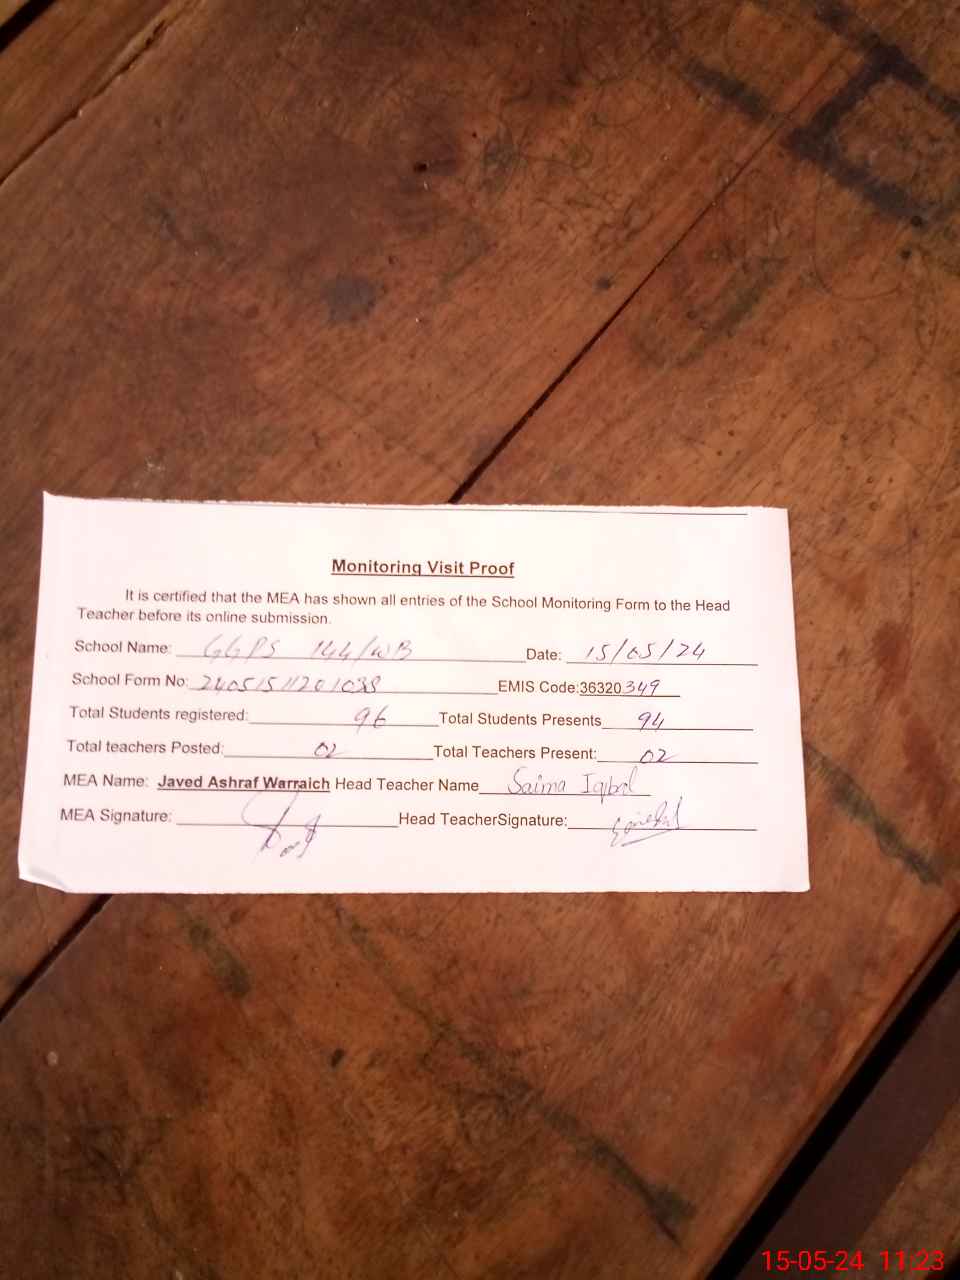 Monitoring Visit Proof
It is certified that the MEA has shown all entries of the School Monitoring Form to the Head
Teacher before its online submission.
School Name: GGPS 144/WB Date: 15/05/24
School Form No: EMIS Code:36320349
Total Students registered: 96 Total Students Presents 94
Total teachers Posted: 02 Total Teachers Present: 02
MEA Name: Javed Ashraf Warraich Head Teacher Name Saima Iqbal
MEA Signature: Head TeacherSignature:
15-05-24 11:23